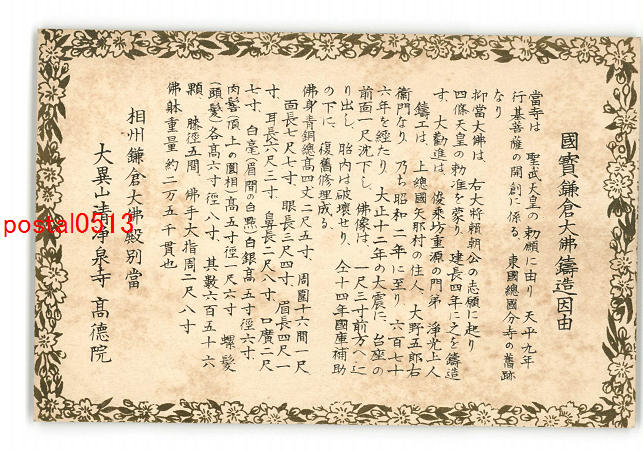 國寶鎌倉大佛鑄造因由
當寺は 聖武天皇の勅願に由り 天平九年
行基菩薩の開創に係る、東國總國分寺の舊跡
なり
抑當大佛は、右大将頼朝公の志願に起り
四條天皇の勅准を蒙り、建長四年に之を鑄造
す、大勸進は、俊乘坊重源の門弟 淨光上人
鑄工は、上總國矢那村の住人、大野五郎右
衛門なり、乃ち昭和二年に至り 六百七十
六年を經たり、大正十二年の大震に、台座の
前面一尺沈下し、佛像は、一尺三寸前方へ迄
り出し、胎内は破壊せり、仝十四年國庫補助
の下に、復舊修理成る、
佛身青銅總高四丈二尺五寸、周圍十六間一尺
面長七尺七寸、眼長三尺四寸、眉長四尺一
寸、耳長六尺三寸、鼻長二尺八寸、口廣二尺
七寸、白毫(眉間の白點)白銀高五寸徑六寸、
肉髻(頂上の圓相)高五寸徑一尺六寸 螺髪
(頭髪)各高六寸徑八寸、其數六百五十六
顆 膝徑五間 佛手大指周二尺八寸
佛躰重量約二万五千貫也
相州鎌倉大佛殿別當
大異山清淨泉寺 高德院
postal0513